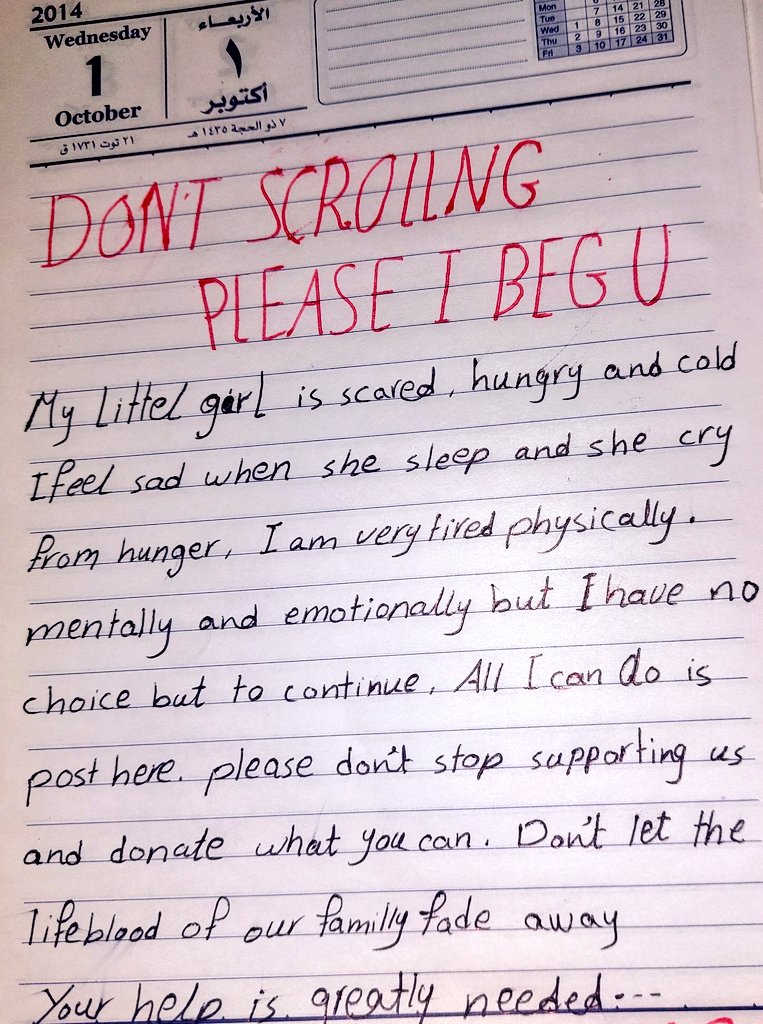 2014
Wednesday
1
October
الأربعاء
١
أكتوبر
٧ ذو الحجة ١٤٣٥ هـ
٢١ توت ١٧٣١ ق
Mon 7 14 21 28
Tue 1 8 15 22 29
Wed 2 9 16 23 30
Thu 3 10 17 24 31
Fri
DONT SCROLLNG
PLEASE I BEG U
My Littel girl is scared, hungry and cold
I feel sad when she sleep and she cry
from hunger, I am very tired physically.
mentally and emotionally but I have no
choice but to continue, All I can do is
post here. please don't stop supporting us
and donate what you can. Don't let the
lifeblood of our familly fade away
Your help is greatly needed---